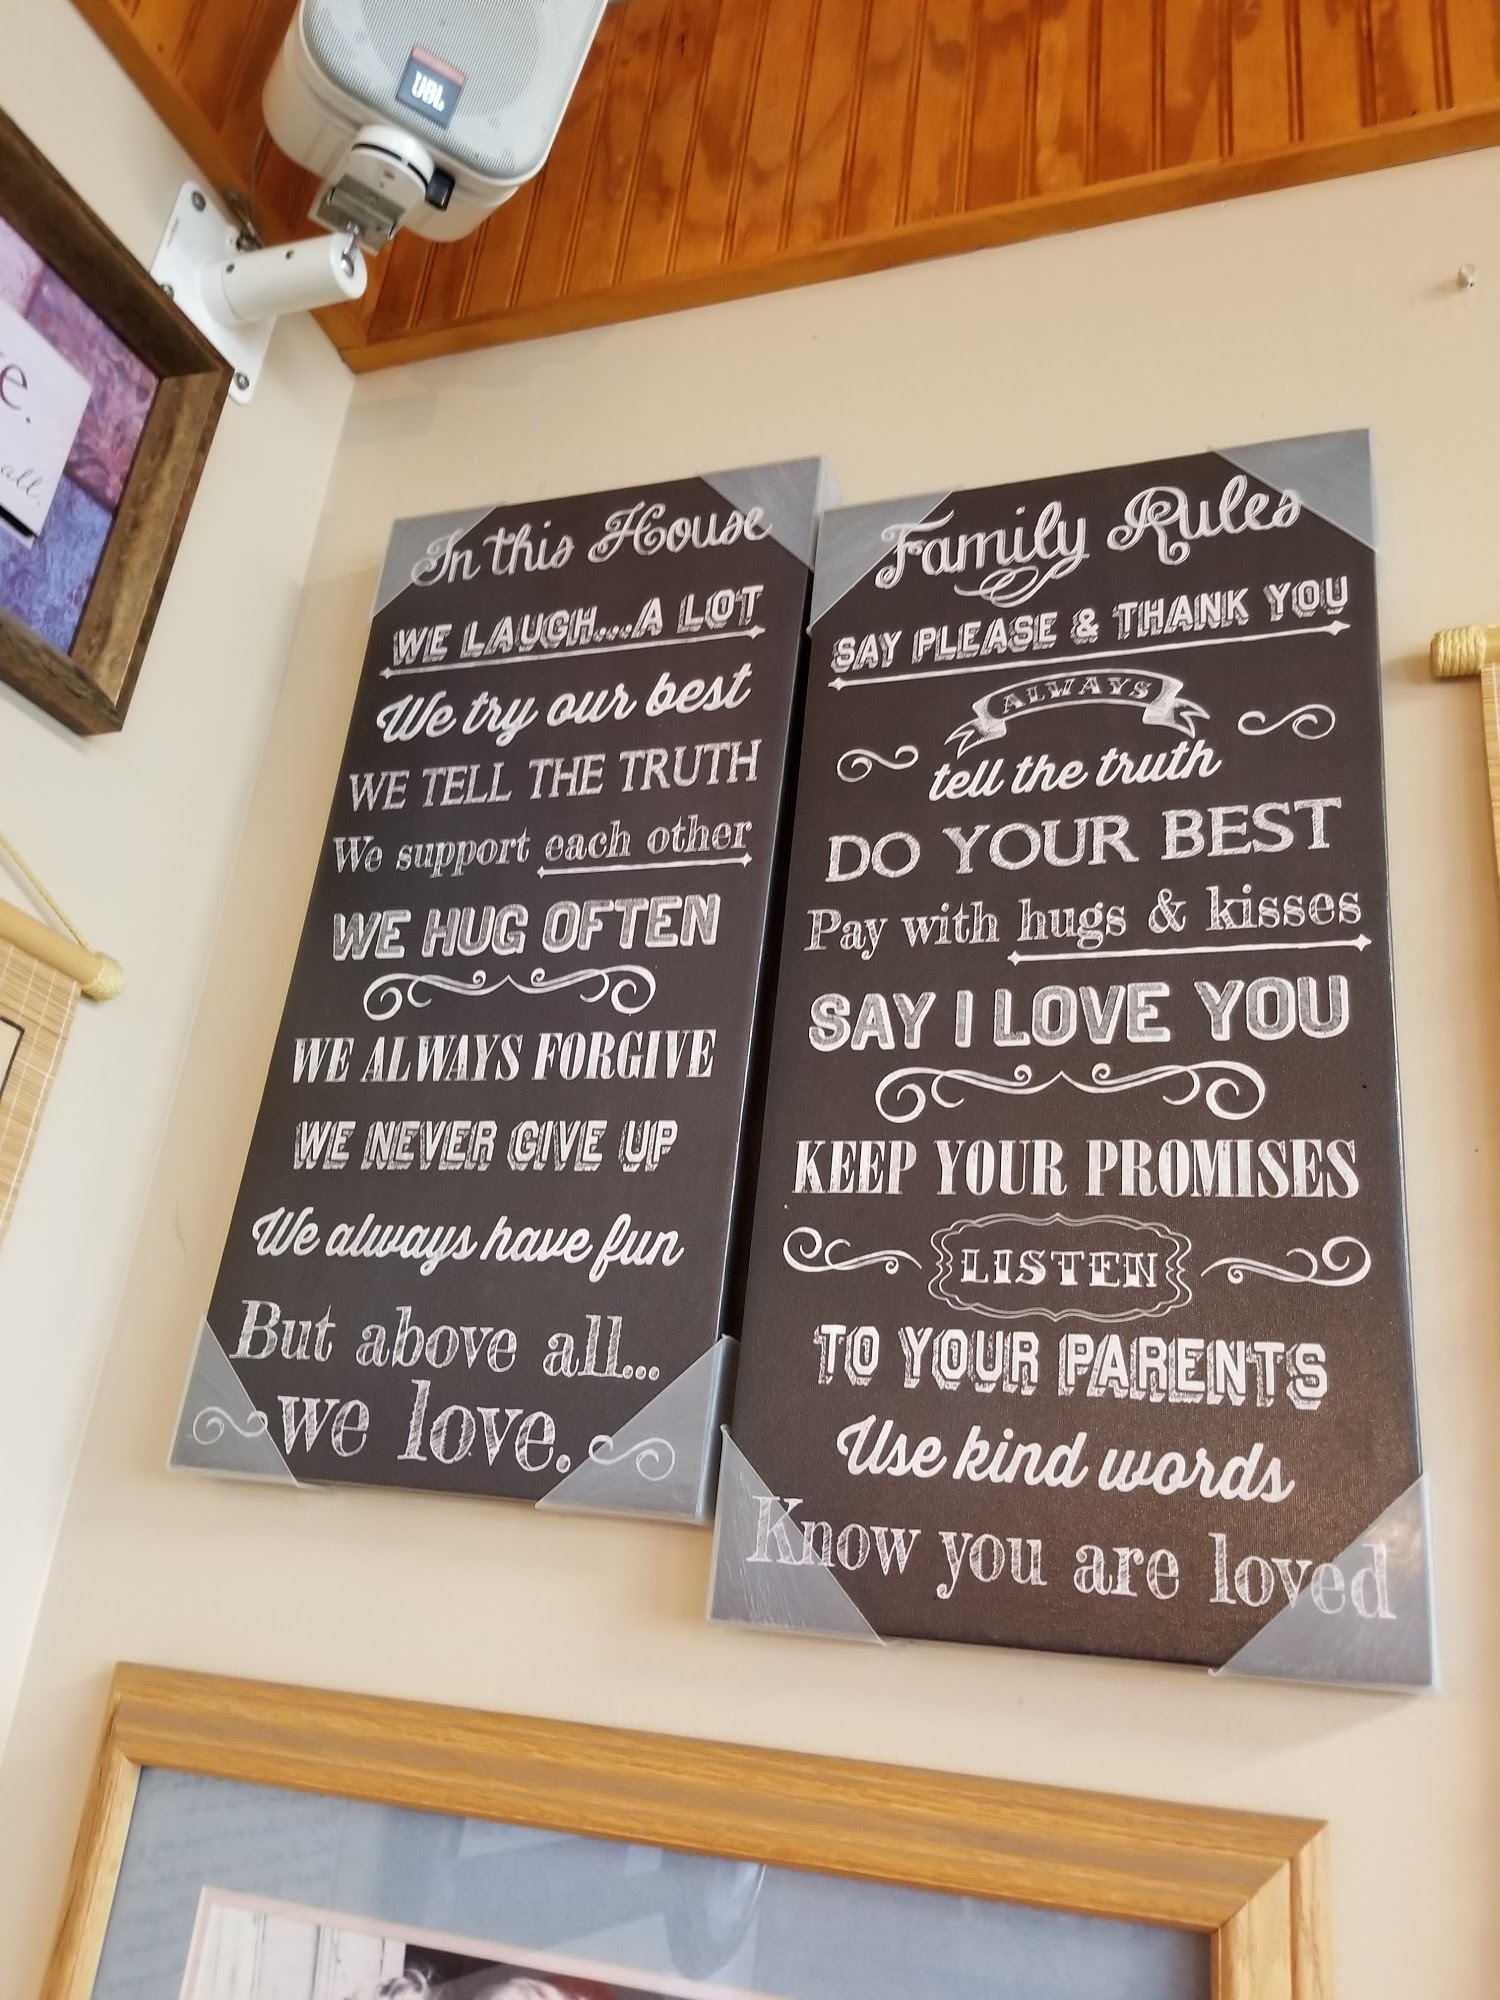 JBL
e.
all.
In this House
WE LAUGH....A LOT
We try our best
WE TELL THE TRUTH
We support each other
WE HUG OFTEN
WE ALWAYS FORGIVE
WE NEVER GIVE UP
We always have fun
But above all...
we love.
Family Rules
SAY PLEASE & THANK YOU
ALWAYS
tell the truth
DO YOUR BEST
Pay with hugs & kisses
SAY I LOVE YOU
KEEP YOUR PROMISES
LISTEN
TO YOUR PARENTS
Use kind words
Know you are loved